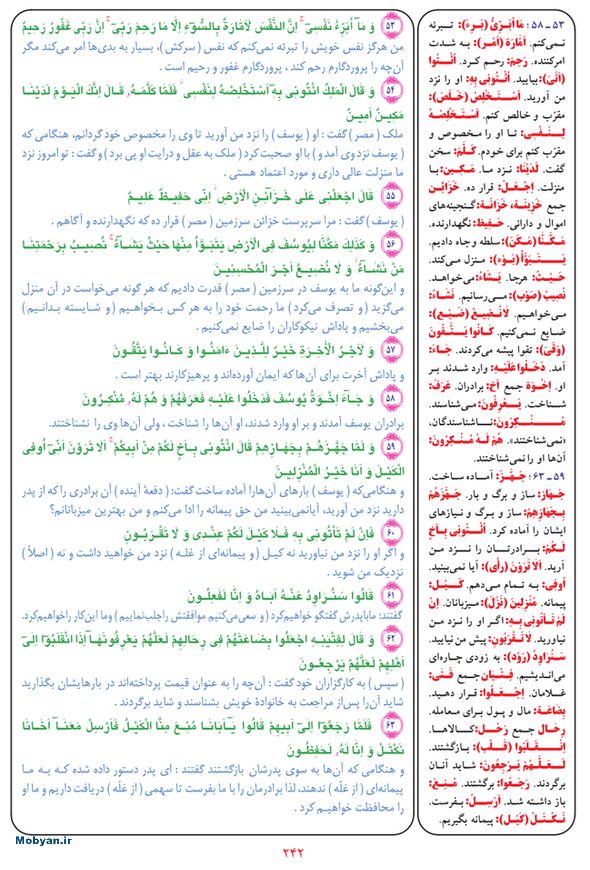 ۵۳ ـ ۵۸ : مَا اُبَرِّیُ (بَرِءَ): تبرئه
نمی‌کنم. اَمّارَةٌ (اَمَرَ): به شدت
امرکننده. رَحِمَ: رحم کرد. اُئْتُوا
(اَتَیَ): بیایید. اُئْتُونِی بِهِ: او را نزد
من آورید. اَسْتَخْلِصُ (خَلَصَ):
مقرّب و خالص کنم. اَسْتَخْلِصْهُ
لِنَفْسِی: تا او را مخصوص و
مقرّب کنم برای خودم. کَلَّمَ: سخن
گفت. لَدَیْنَا: نزد ما. مَکینٌ: با
منزلت. اِجْعَلْ: قرار ده. خَزَائِنِ
جمع خَزینَة، خَزَانَة: گنجینه‌های
اموال و دارائی. حَفیظٌ: نگهدارنده.
مَکَّنَّا (مَکَنَ): سلطه و جاه دادیم.
یَتَبَوَّأُ (بَوَءَ): منزل می‌کند.
حَیْثُ: هرجا. یَشَاءُ: می‌خواهد.
نُصیبُ (صَوَبَ): می‌رسانیم. نَشَاءُ:
می‌خواهیم. لَا نُضیعُ (ضَیَعَ):
ضایع نمی‌کنیم. کَانُوا یَتَّقُونَ
(وَقَیَ): تقوا پیشه می‌کردند. جَاءَ:
آمد. دَخَلُوا عَلَیْهِ: وارد شدند بر
او. اِخْوَة جمع اَخ: برادران. عَرَفَ:
شناخت. یَعْرِفُونَ: می‌شناسند.
مُنْکِرُونَ: ناشناسندگان،
«نمی‌شناختند». هُمْ لَهُ مُنْکِرُونَ:
آن‌ها او را نمی‌شناختند.
۵۹ ـ ۶۳ : جَهَّزَ: آماده ساخت.
جَهَاز: ساز و برگ و بار. جَهَّزَهُمْ
بِجَهَازِهِمْ: ساز و برگ و نیازهای
ایشان را آماده کرد. اُئْتُونِی بِاَخٍ
لَکُمْ: برادرتان را نزد من
آرید. اَلَا تَرَوْنَ (رأی): آیا نمی‌بینید.
اُوفِی: به تمام می‌دهم. کَیْل:
پیمانه. مُنْزِلینَ (نَزَلَ): میزبانان. اِنْ
لَمْ تَأْتُونی بِهِ: اگر او را نزد من
نیاورید. لَا تَقْرَبُونِ: پیش من نیایید.
سَنُرَاوِدُ (رَوَدَ): به زودی چاره‌ای
می‌اندیشیم. فِتْیَان جمع فَتیٰ:
غلامان. اِجْعَلُوا: قرار دهید.
بِضَاعَة: مال و پول برای معامله.
رِحَال جمع رَحْل: کالاها.
اِنْقَلَبُوا (قَلَبَ): بازگشتند.
لَعَلَّهُمْ یَرْجِعُونَ: شاید آنان
برگردند. رَجَعُوا: برگشتند. مُنِعَ:
باز داشته شد. اَرْسِلْ: بفرست.
نَکْتَلْ (کَیَلَ): پیمانه بگیریم.
۵۳ وَ مَا اُبَرِّئُ نَفْسِی اِنَّ النَّفْسَ لَاَمَّارَةٌ بِالسُّوءِ اِلَّا مَا رَحِمَ رَبِّی اِنَّ رَبِّی غَفُورٌ رَحیمٌ
من هرگز نفس خویش را تبرئه نمی‌کنم که نفس (سرکش)، بسیار به بدی‌ها امر می‌کند مگر
آن‌چه را پروردگارم رحم کند ، پروردگارم غفور و رحیم است .
۵۴ وَ قَالَ الْمَلِکُ ائْتُونِی بِهِ اَسْتَخْلِصْهُ لِنَفْسِی فَلَمَّا کَلَّمَهُ قَالَ اِنَّکَ الْیَوْمَ لَدَیْنَا
مَکینٌ اَمینٌ
ملک ( مصر ) گفت : او ( یوسف ) را نزد من آورید تا وی را مخصوص خود گردانم، هنگامی که
( یوسف نزد وی آمد و ) با او صحبت کرد ( ملک به عقل و درایت او پی برد ) و گفت : تو امروز نزد
ما منزلت عالی داری و مورد اعتماد هستی .
۵۵ قَالَ اجْعَلْنِی عَلَی خَزَائِنِ الْاَرْضِ اِنِّی حَفیظٌ عَلیمٌ
( یوسف ) گفت : مرا سرپرست خزائن سرزمین ( مصر ) قرار ده که نگهدارنده و آگاهم .
۵۶ وَ کَذَلِکَ مَکَّنَّا لِیُوسُفَ فِی الْاَرْضِ یَتَبَوَّأُ مِنْهَا حَیْثُ یَشَاءُ نُصیبُ بِرَحْمَتِنَا
مَنْ نَشَاءُ وَ لَا نُضیعُ اَجْرَ الْمُحْسِنینَ
و این‌گونه ما به یوسف در سرزمین ( مصر ) قدرت دادیم که هر گونه می‌خواست در آن منزل
می‌گزید ( و تصرف می‌کرد ) ما رحمت خود را به هر کس بخواهیم ( و شایسته بدانیم )
می‌بخشیم و پاداش نیکوکاران را ضایع نمی‌کنیم .
۵۷ وَ لَاَجْرُ الْآخِرَةِ خَیْرٌ لِلَّذینَ ءَامَنُوا وَ کَانُوا یَتَّقُونَ
و پاداش آخرت برای آن‌ها که ایمان آورده‌اند و پرهیزکارند بهتر است .
۵۸ وَ جَاءَ اِخْوَةُ یُوسُفَ فَدَخَلُوا عَلَیْهِ فَعَرَفَهُمْ وَ هُمْ لَهُ مُنْکِرُونَ
برادران یوسف آمدند و بر او وارد شدند، او آن‌ها را شناخت ، ولی آن‌ها وی را نشناختند.
۵۹ وَ لَمَّا جَهَّزَهُمْ بِجَهَازِهِمْ قَالَ ائْتُونِی بِاَخٍ لَکُمْ مِنْ اَبیکُمْ اَلَا تَرَوْنَ اَنِّی اُوفِی
الْکَیْلَ وَ اَنَا خَیْرُ الْمُنْزِلینَ
و هنگامی‌که ( یوسف ) بارهای آن‌هارا آماده ساخت گفت : ( دفعهٔ آینده ) آن برادری را که از پدر
دارید نزد من آورید، آیانمی‌بینید من حق پیمانه را ادا می‌کنم و من بهترین میزبانانم؟
۶۰ فَاِنْ لَمْ تَأْتُونِی بِهِ فَلَا کَیْلَ لَکُمْ عِنْدِی وَ لَا تَقْرَبُونِ
و اگر او را نزد من نیاورید نه کیل ( و پیمانه‌ای از غلـه ) نزد من خواهید داشت و نه ( اصلاً )
نزدیک من شوید .
۶۱ قَالُوا سَنُرَاوِدُ عَنْهُ اَبَاهُ وَ اِنَّا لَفَاعِلُونَ
گفتند: ماباپدرش گفتگو خواهیم‌کرد ( و سعی‌می‌کنیم موافقتش راجلب‌نماییم ) وماا‌ین‌کار راخواهیم‌کرد.
۶۲ وَ قَالَ لِفِتْیَانِهِ اجْعَلُوا بِضَاعَتَهُمْ فِی رِحَالِهِمْ لَعَلَّهُمْ یَعْرِفُونَهَا اِذَا انْقَلَبُوا اِلَی
اَهْلِهِمْ لَعَلَّهُمْ یَرْجِعُونَ
( سپس ) به کارگزاران خود گفت : آن‌چه را به عنوان قیمت پرداخته‌اند در بارهایشان بگذارید
شاید آن‌را پس‌از مراجعت به خانوادهٔ خویش بشناسند و شاید برگردند .
۶۳ فَلَمَّا رَجَعُوا اِلَی اَبیهِمْ قَالُوا یَا اَبَانَا مُنِعَ مِنَّا الْکَیْلُ فَاَرْسِلْ مَعَنَا اَخَانَا
نَکْتَلْ وَ اِنَّا لَهُ لَحَافِظُونَ
و هنگامی که آن‌ها به سوی پدرشان بازگشتند گفتند : ای پدر دستور داده شده کـه بـه مـا
پیمانه‌ای ( از غلّه ) ندهند، لذا برادرمان را با ما بفرست تا سهمی ( از غلّه ) دریافت داریم و ما او
را محافظت خواهیـم کرد .
Mobyan.ir
۲۴۲